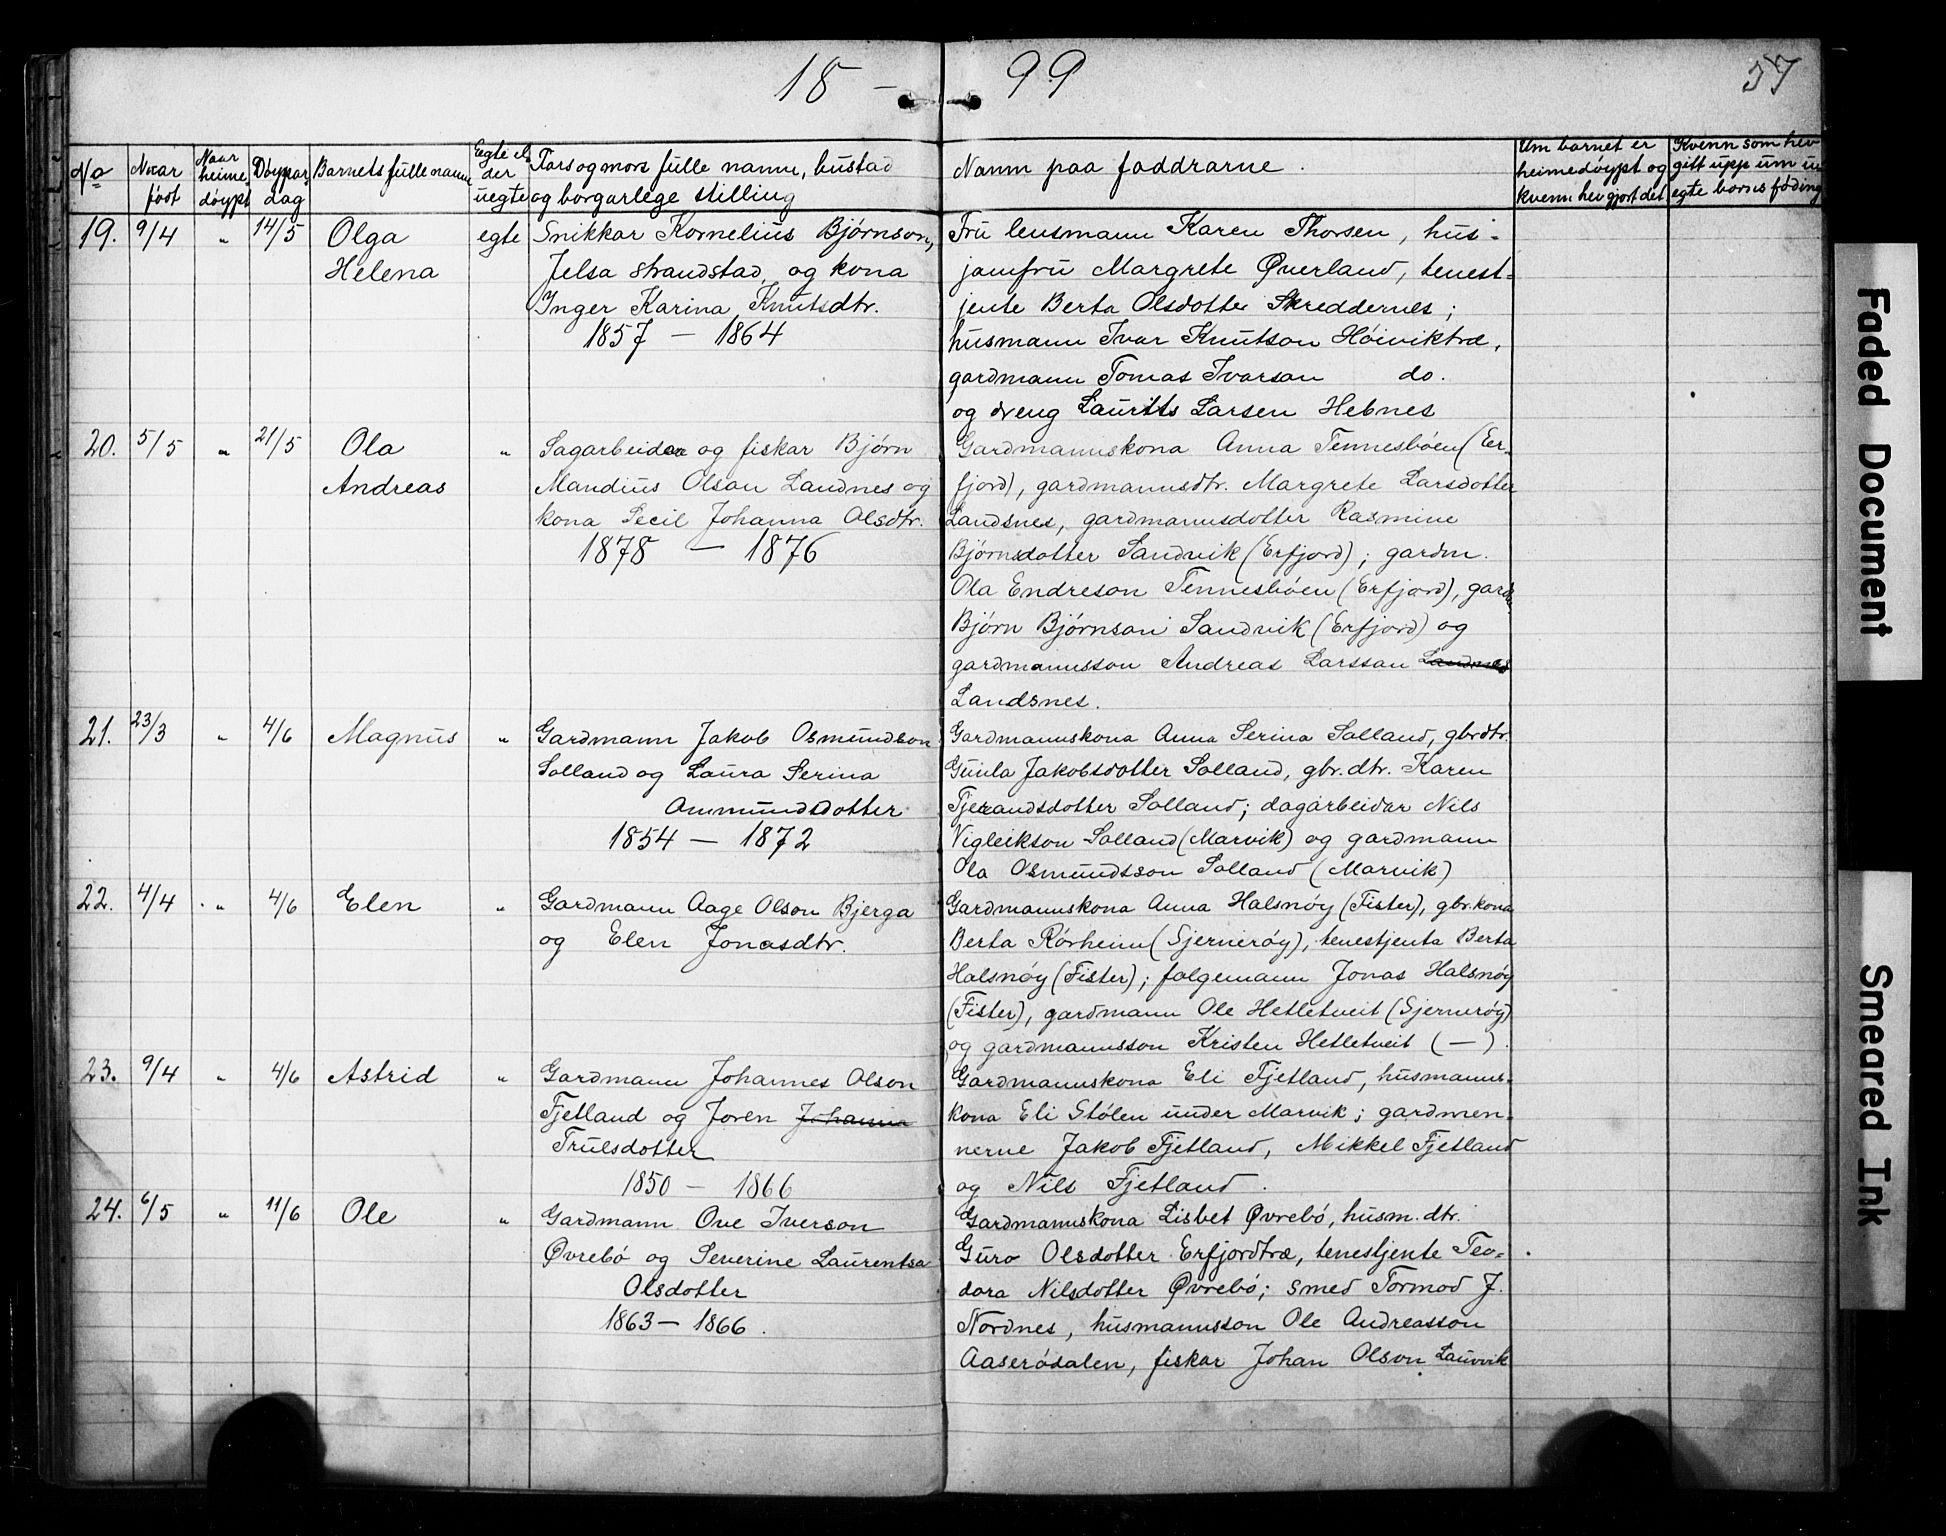 18 — 99
57
No
Naar født
Naar heimedøypt
Døypardag
Barnets fulle namn
Egte elder uegte
Fars og mors fulle namn, bustad og borgarlege stilling
Namn paa faddrarne.
Um barnet er heimedøypt og kvenn hev gjort det
Kvenn som hev gitt upp um uegte borns føding
19. 9/4 " 14/5 Olga Helena egte
Snikkar Kornelius Bjørnson,
Jelsa strandstad, og kona
Inger Karina Knutsdtr.
1857 — 1864
Fru lensmann Karen Thorsen, hus-
jomfru Margrete Øverland, tenest-
jente Berta Olsdotter Skreddernes;
husmann Ivar Knutson Høiviktræ,
gardmann Tomas Ivarson do.
og dreng Laurits Larsen Hebnes
20. 5/5 " 21/5 Ola Andreas "
Sagarbeidar og fiskar Bjørn
Mandius Olson Landnes og
kona Secil Johanna Olsdtr.
1878 — 1876
Gardmannskona Anna Tennesbøen (Er-
fjord), gardmannsdtr. Margrete Larsdotter
Landsnes, gardmannsdotter Rasmine
Bjørnsdotter Sandvik (Erfjord); gardm.
Ola Endreson Tennesbøen (Erfjord), gardm
Bjørn Bjørnson Sandvik (Erfjord) og
gardmannsson Andreas Larsson Landnes
Landsnes.
21. 23/3 " 4/6 Magnus "
Gardmann Jakob Osmundson
Solland og Laura Serina
Ommundsdotter
1854 — 1872
Gardmannskona Anna Serina Solland, gbrdtr.
Gunla Jakobsdotter Solland, gbr. dtr. Karen
Tjerandsdotter Solland; dagarbeidar Nils
Vigleikson Solland (Marvik) og gardmann
Ola Osmundsson Solland (Marvik)
22. 4/4 " 4/6 Elen "
Gardmann Aage Olson Bjerga
og Elen Jonasdtr.
Gardmannskona Anna Halsnøy (Fister), gbr.kona
Berta Rørheim (Sjernerøy), tenestjenta Berta
Halsnøy (Fister); følgemann Jonas Halsnøy
(Fister), gardmann Ole Hetletveit (Sjernerøy)
og gardmannsson Kristen Hetletveit (—).
23. 9/4 " 4/6 Astrid "
Gardmann Johannes Olson
Fjetland og Joren Johanna
Trulsdotter
1850 — 1866
Gardmannskona Eli Fjetland, husmanns-
kona Eli Stølen under Marvik; gardmen-
nerne Jakob Fjetland, Mikkel Fjetland
og Nils Fjetland.
24. 6/5 " 11/6 Ole "
Gardmann Ove Iverson
Øvrebø og Severine Laurentsa
Olsdotter
1863 — 1866.
Gardmannskona Lisbet Øvrebø, husm. dtr.
Guro Olsdotter Erfjordtræ, tenestjente Teo-
dora Nilsdotter Øvrebø; smed Tormod J.
Nordnes, husmannsson Ole Andreasson
Aaserødalen, fiskar Johan Olson Lauvvik
Faded Document
Smeared Ink